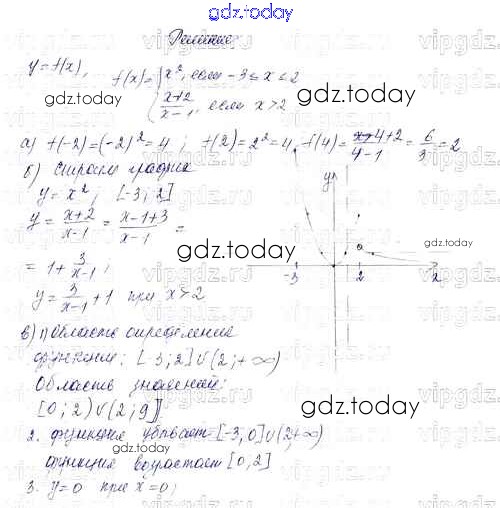 gdz.today
Решение:
y=f(x), f(x)={x², если -3≤x≤2
{x+2/x-1, если x>2
gdz.today
gdz.today
а) f(-2)=(-2)²=4; f(2)=2²=4, f(4)=4+2/4-1=6/3=2
б) Строим график
y=x²; [-3;2]
y=x+2/x-1=x-1+3/x-1=
=1+3/x-1;
y=3/x-1+1 при x>2
gdz.today
gdz.today
y
-3 2 x
gdz.today
в) 1) Область определения
функции: [-3;2]∪(2;+∞)
Область значений:
[0;2)∪(2;9]
gdz.today
2. Функция убывает [-3,0]∪(2;+∞)
функция возрастает [0,2]
3. y=0 при x=0;
gdz.today
vipgdz.ru